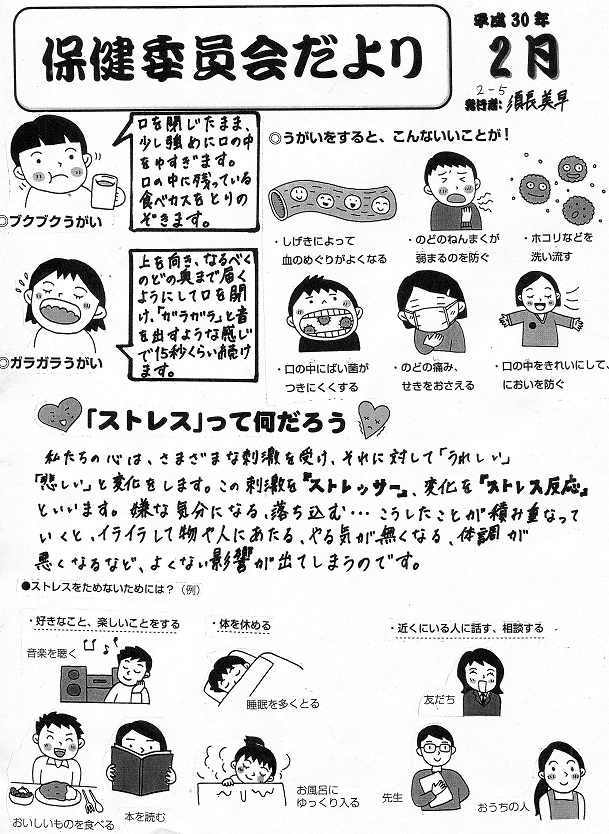 保健委員会だより
平成30年
2月
2-5
発行者：須長美早
口を閉じたまま、
少し強めに口の中
をゆすぎます。
口の中に残っている
食べカスをとりの
ぞきます。
◎ブクブクうがい
上を向き、なるべく
のどの奥まで届く
ようにして口を開
け、「ガラガラ」と音
を出すような感じ
で15秒くらい続け
ます。
◎ガラガラうがい
◎うがいをすると、こんないいことが！
・しげきによって
血のめぐりがよくなる
・のどのねんまくが
弱まるのを防ぐ
・ホコリなどを
洗い流す
・口の中にばい菌が
つきにくくする
・のどの痛み、
せきをおさえる
・口の中をきれいにして、
においを防ぐ
「ストレス」って何だろう
私たちの心は、さまざまな刺激を受け、それに対して「うれしい」
「悲しい」と変化をします。この刺激を『ストレッサー』、変化を『ストレス反応』
といいます。嫌な気分になる、落ち込む…こうしたことが積み重なって
いくと、イライラして物や人にあたる、やる気が無くなる、体調が
悪くなるなど、よくない影響が出てしまうのです。
●ストレスをためないためには？（例）
・好きなこと、楽しいことをする
音楽を聴く
おいしいものを食べる
本を読む
・体を休める
睡眠を多くとる
お風呂に
ゆっくり入る
・近くにいる人に話す、相談する
友だち
先生
おうちの人